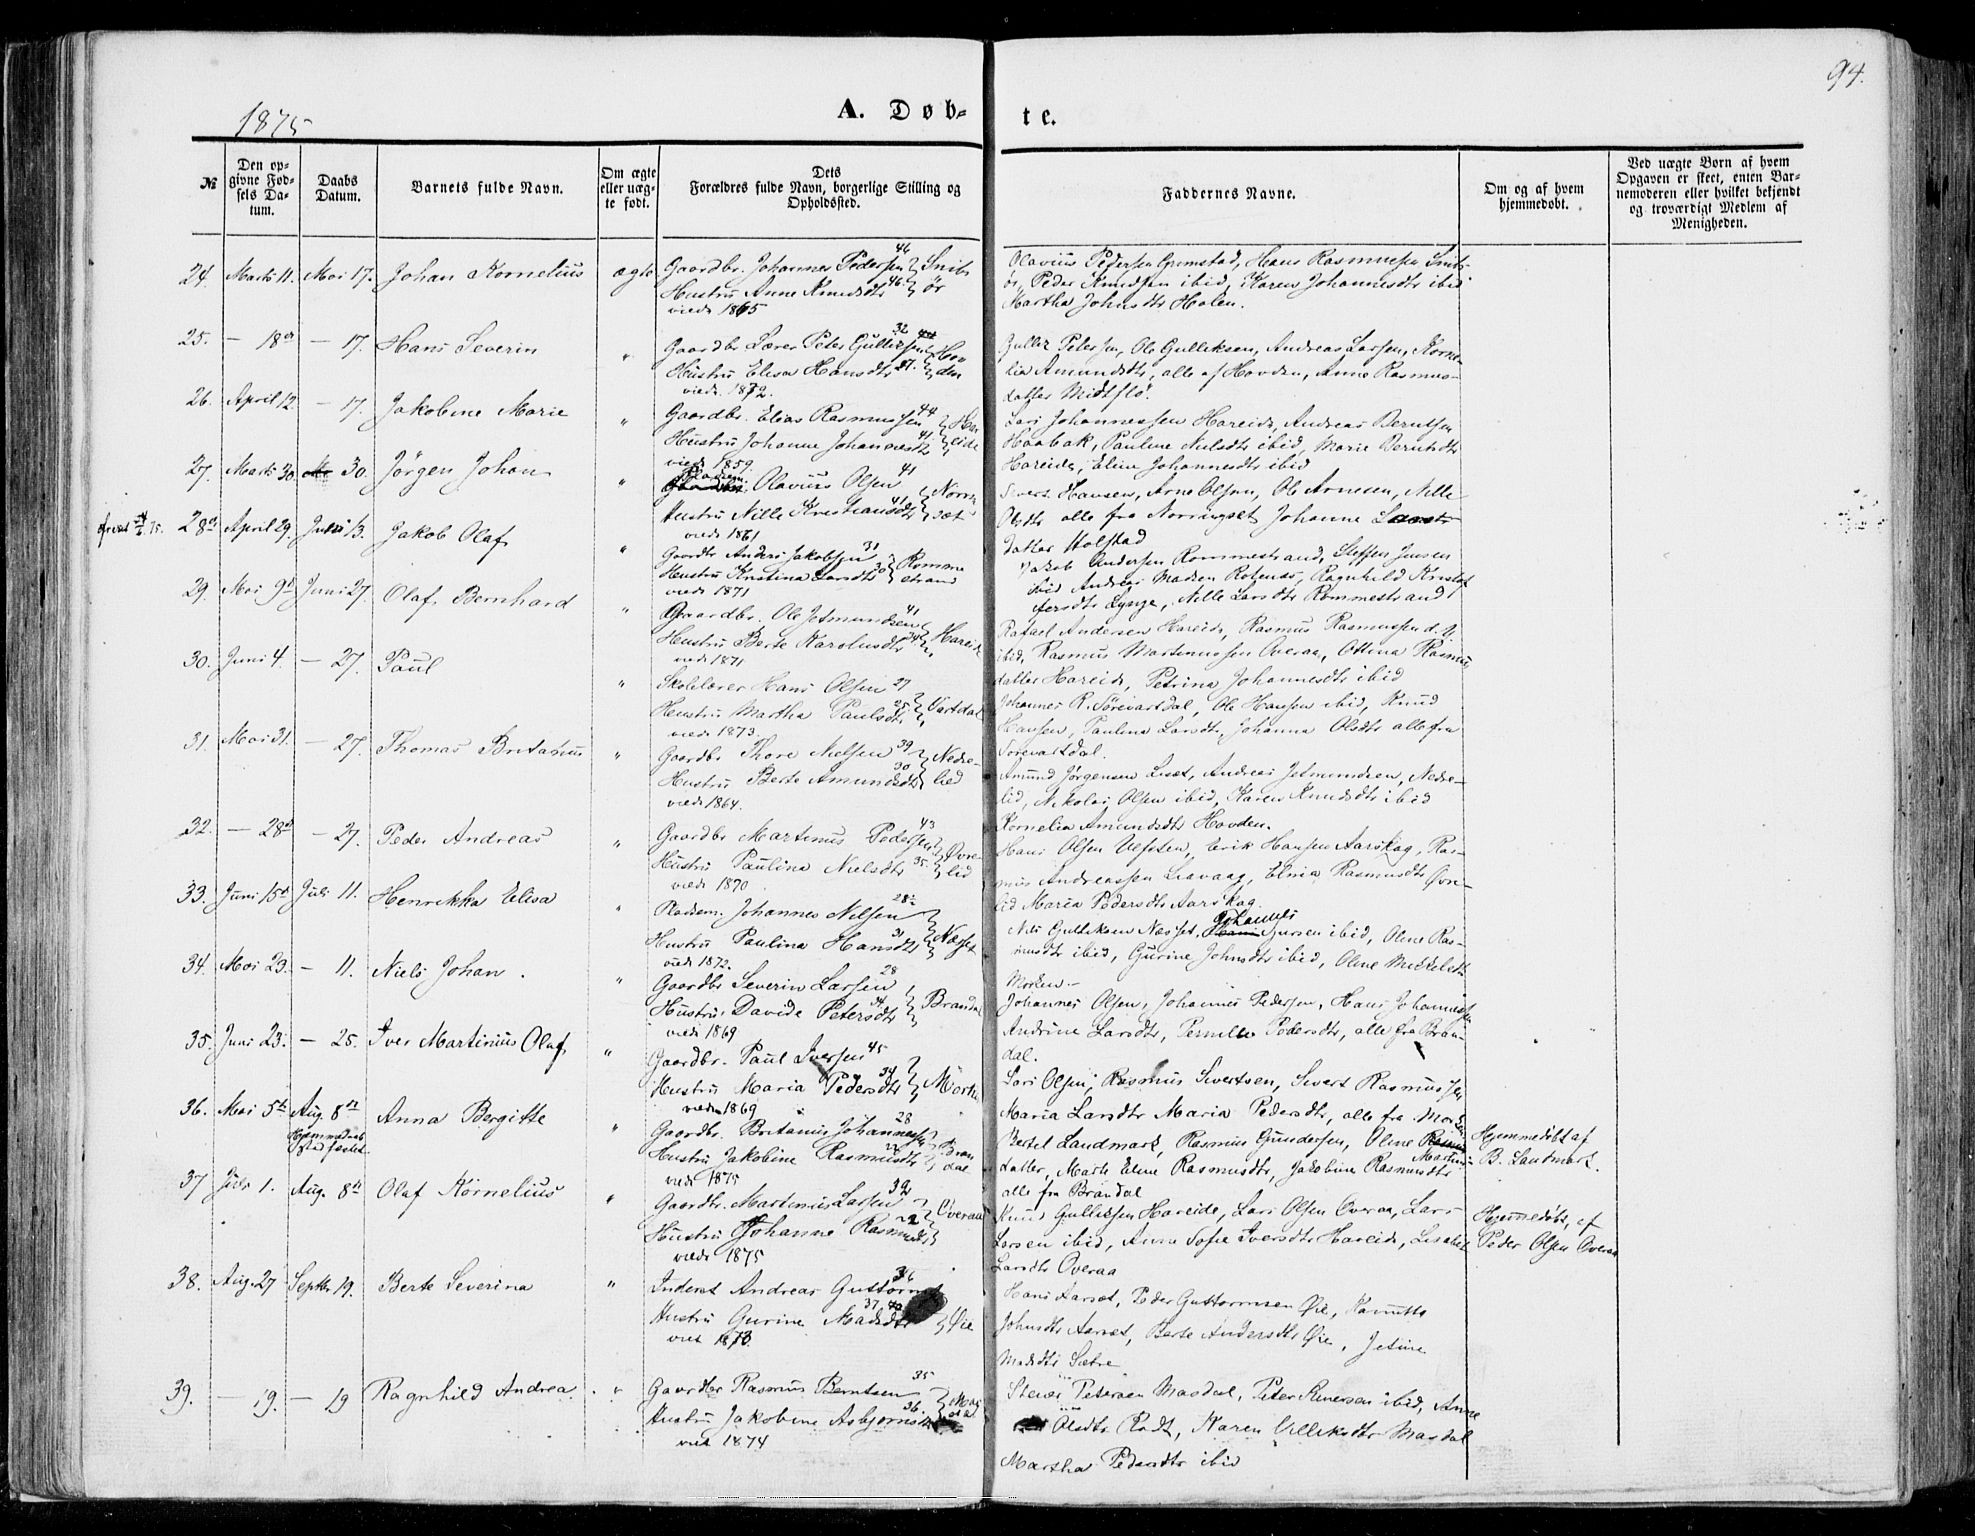 94.
1875
A. Døb-
te.
№
Den op-
givne Fød-
sels Da-
tum.
Daabs
Datum.
Barnets fulde Navn.
Om ægte
eller uæg-
te født.
Dets
Forældres fulde Navn, borgerlige Stilling og
Opholdssted.
Faddernes Navne.
Om og af hvem
hjemmedøbt.
Ved uægte Børn af hvem
Opgaven er skeet, enten Bar-
nemoderen eller hvilket bekjendt
og troværdigt Medlem af
Menigheden.
24. Marts 11. Mai 17. Johan Kornelius ægte Gaardbr. Johannes Pedersen 46 Snits
Hustru Anne Knudsdtr 46. ör
viede 1865
Olavius Pedersen Grimstad, Hans Rasmussen Snits-
ör, Peder Knudsen ibid, Karen Johannesdtr ibid
Martha Johnsdtr Holen.
25. — 18de — 17. Hans Severin " Gaardbr Lærer Peter Gulliksen 32 Hov
Hustru Elisa Hansdtr 27. den
viede 1872.
Gullik Petersen, Ole Gulliksen, Andreas Larsen, Korne-
lia Amundsdtr, alle af Hovden, Anne Rasmus-
datter Midtflø.
26. April 12. — 17. Jakobine Marie " Gaardbr. Elias Rasmussen 44 Har
Hustru Johanne Johannesdtr 41. eide
viede 1859.
Lars Johannessen Hareide, Andreas Berntsen
Haabak, Pauline Nilsdtr ibid, Marie Berntsdtr
Hareide, Eline Johannesdtr ibid
27. Marts 30. 30. Jörgen Johan " Pladsm. Olavius Olsen 41 Norrin
Hustru Nille Kristiansdtr 41 sæt
viede 1861
Sivert Hansen, Arne Olsen, Ole Arnesen, Nille
Olsdtr alle fra Norringset Johanne Lars
datter Holstad
28de April 29. Juni 13. Jakob Olaf " Gaardbr Anders Jakobsen 31 Romme
Hustru Kristina Larsdtr 30 strand
viede 1871
Jakob Andersen Rommestrand, Steffen Jensen
ibid Andreas Madsen Rotenes, Ragnhild Kristof
fersdtr Lynge, Nille Larsdtr Rommestrand
29. Mai 9de Juni 27. Olaf Bernhard " Gaardbr. Ole Jetmundsen 41
Hustru Berte Karolusdtr 34 Hareide
viede 1871
Rafael Andersen Hareide, Rasmus Rasmussen d. y.
ibid, Rasmus Martinussen Overaa, Ottina Rasmus
datter Hareide, Petrina Johannesdtr ibid
30. Juni 4. — 27. Paul " Skolelærer Hans Olsen 27
Hustru Martha Paulsdtr 25 Vartdal
viede 1873.
Johannes R. Sörevartdal, Ole Hansen ibid, Knud
Hansen, Paulina Larsdtr, Johanna Olsdtr alle fra
Sörevartdal.
31. Mai 31. — 27. Thomas Britanus " Gaardbr Thore Nielsen 39 Nedre-
Hustru Berte Amundsdtr 30 lied
viede 1864.
Amund Jörgensen Liset, Andreas Jetmundsen, Nedre-
lid, Nikolai Olsen ibid, Karen Knudsdtr ibid
Kornelia Amundsdtr Hovden.
32. — 28de — 27. Peder Andreas " Gaardbr Martinus Pedersen 43 Øvre-
Hustru Paulina Nielsdtr 35. lid
viede 1870
Hans Olsen Ulfsten, Erik Hansen Aarskog, Ras-
mus Andreassen Liavaag, Elnia Rasmusdtr Øvre-
lid Maria Pedersdtr Aarskog.
33. Juni 15de Juli 11. Henrikka Elisa " Pladsm. Johannes Nilsen 28
Hustru Paulina Hansdtr 31 Næsset
viede 1872.
Nils Gulliksen Næsset, Johannes Iversen ibid, Oline Ras-
musdtr ibid, Gurine Johnsdtr ibid, Oline Mikkelsdtr
Morken.
34. Mai 23. — 11. Niels Johan. " Gaardbr Severin Larsen 28
Hustru Davide Petersdtr 34 Brandal
viede 1869
Johannes Olsen, Johannes Pedersen, Hans Johannessen
Andrine Larsdtr, Pernille Pedersdtr, alle fra Bran-
dal.
35. Juni 23. — 25. Iver Martinus Olaf " Gaardbr. Paul Iversen 45
Hustru Maria Pedersdtr 34 Mörk
viede 1869
Lars Olsen, Rasmus Sivertsen, Sivert Rasmussen
Maria Larsdtr Maria Pedersdtr, alle fra Morken
36. Mai 5te Aug. 8de Anna Bergitte " Gaardbr. Britanus Johannessen 28 Bran
Hjemmedaab
stadfæstet.
Hustru Jakobine Rasmusdtr dal
viede 1875
Bertel Landmark, Rasmus Gundersen, Oline Martinus
datter, Marte Eline Rasmusdtr, Jakobine Rasmusdtr
alle fra Brandal
Hjemmedøbt af
B. Landmark.
37 Juli 1. Aug. 8de Olaf Kornelius " Gaardbr. Martinus Larsen 32 Overaa
Hustru Johanne Rasmusdtr
viede 1875
Knud Gulliksen Hareide, Lars Olsen Overaa, Lars
Larsen ibid, Anne Sofie Iversdtr Hareide, Lisabet
Larsdtr Overaa
Hjemmedøbt, af
Peder Olsen Overaa
38. Aug. 27 Septbr 19. Berte Severina " Inderst Andreas Guttorms
Hustru Gurine Madsdtr 37 Øie
viet 1873.
Hans Aarset, Peder Guttormsen Øie,
Johnsdtr Aarset, Berte Andersdtr Øie, Jetine
Madsdtr Sætre
39. — 19. — 19 Ragnhild Andrea " Gaardbr Rasmus Berntsen 35 Mas
Hustru Jakobine Asbjørnsdtr 36. dal
viet 1874
Stener Petersen Masdal, Peter Stenersen ibid, Anne
Olsdtr Rødt, Karen Velliksdtr Masdal
Martha Pedersdtr ibid